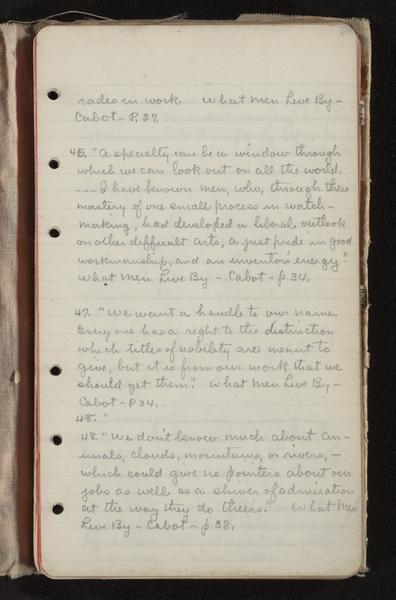 rades in work. What Men Live By -
Cabot - P. 27.
46. "A specialty can be a window through
which we can look out on all the world.
--- I have known men, who, through their
mastery of one small process in watch-
making, had developed a liberal outlook
on other difficult arts, a just pride in good
workmanship, and an inventor's energy."
What Men Live By - Cabot - p 34.
47. "We want a handle to our names.
Every one has a right to the distinction
which titles of nobility are meant to
give, but it is from our work that we
should get them." What Men Live By -
Cabot - P 34.
48. '
48. "We don't know much about an-
imals, clouds, mountains, or rivers, -
which could give us pointers about our
jobs as well as a shiver of admiration
at the way they do theirs." What Men
Live By - Cabot - p 38.